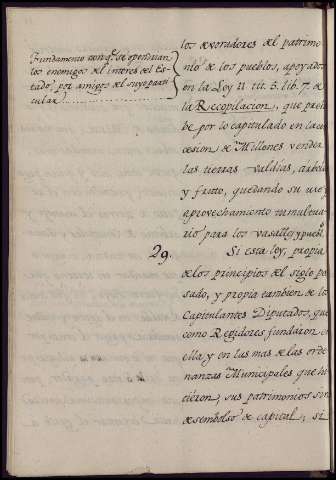 Fundamento con q.e se oponian
los enemigos del interes del Es-
tado por amigos del suyo parti-
cular
los devoradores del patrimo-
nio de los pueblos, apoyados
en la Ley 11. tit. 5. lib. 7. de
la Recopilacion, que prohi
be por lo capitulado en la con
cesion de Millones vender
las tierras valdías, arboles
y fruto, quedando su uso y
aprovechamento tumultua-
rio para los vasallos y pueb.s
29. Si esta ley, propia
de los principios del siglo pa
sado, y propia tambien de los
Capitulantes Diputados, que
como Regidores fundaron en
ella, y en las mas de las orde
nanzas Municipales que hi
cieron, sus patrimonios sin
desembolso de capital; si